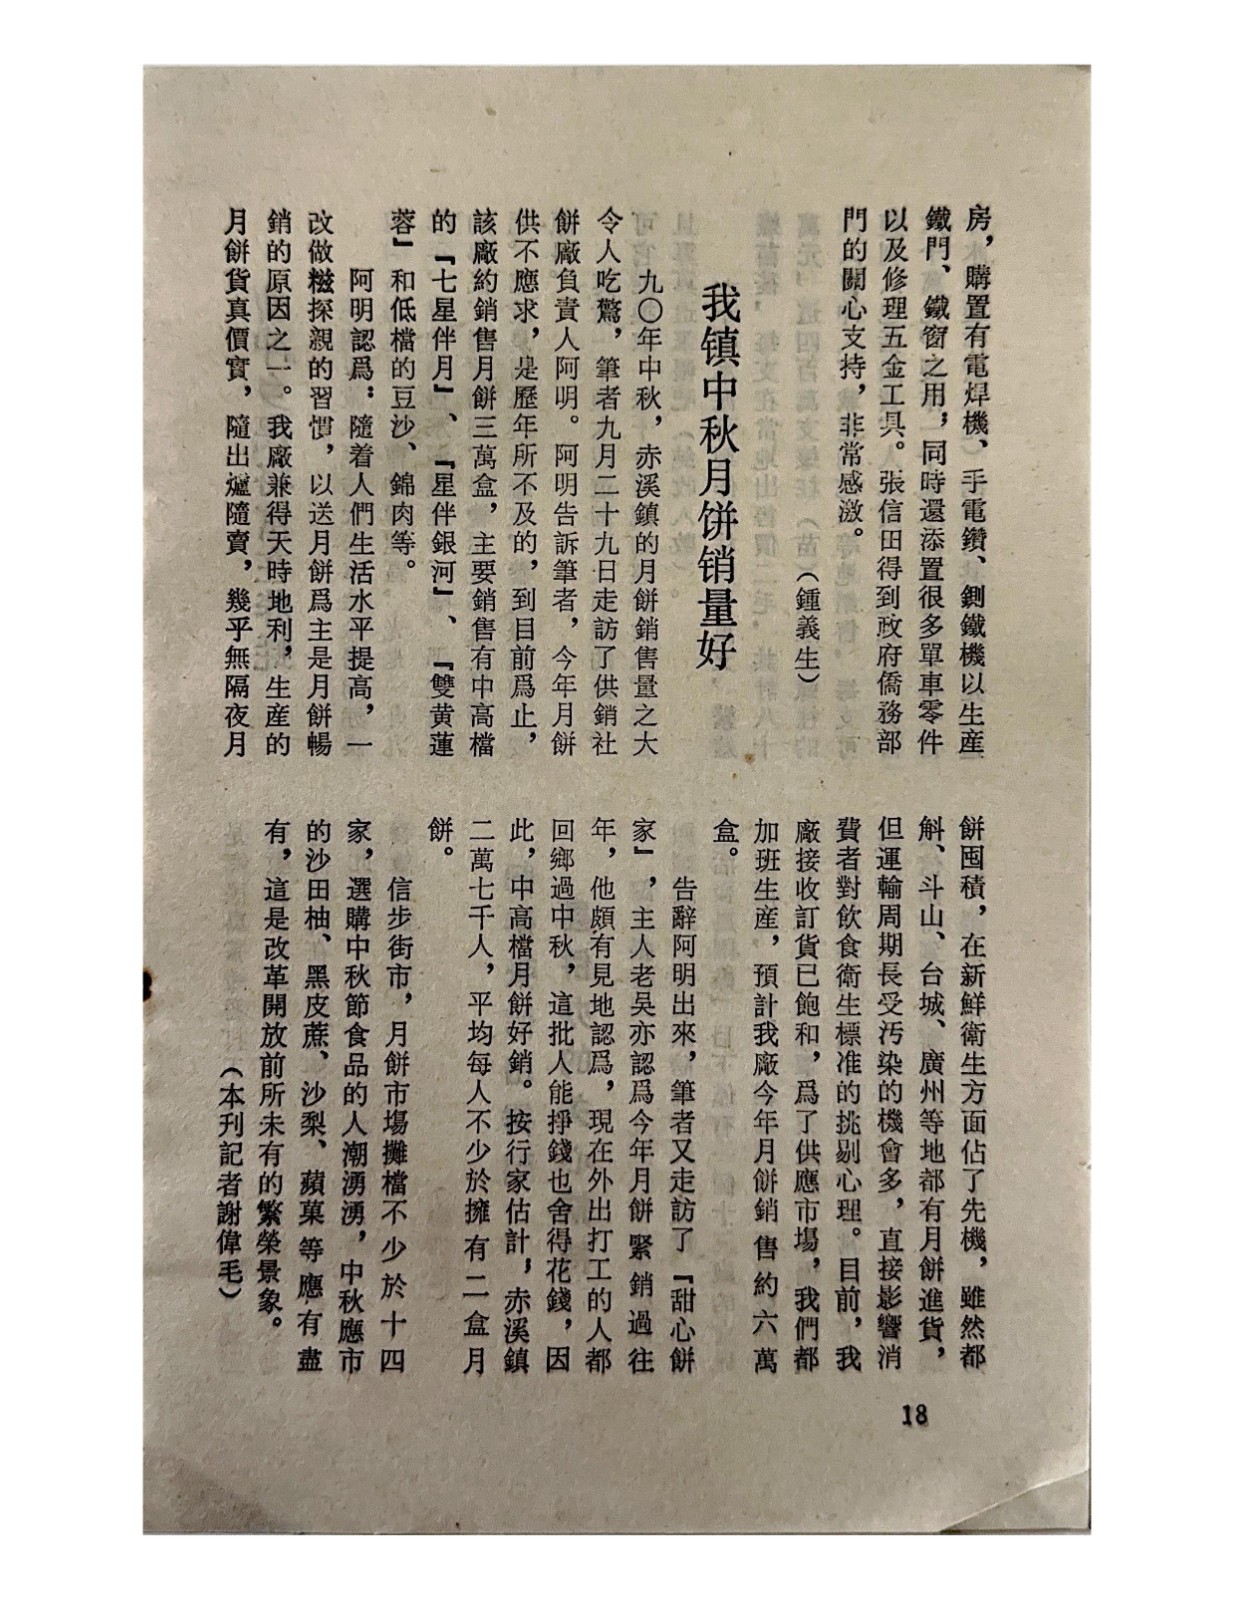 房，購置有電焊機、手電鑽、鍘鐵機以生産
鐵門、鐵窗之用，同時還添置很多單車零件
以及修理五金工具。張信田得到政府僑務部
門的關心支持，非常感激。
（鍾義生）
我镇中秋月饼销量好
九〇年中秋，赤溪鎮的月餅銷售量之大
令人吃驚，筆者九月二十九日走訪了供銷社
餅廠負責人阿明。阿明告訴筆者，今年月餅
供不應求，是歷年所不及的，到目前爲止，
該廠約銷售月餅三萬盒，主要銷售有中高檔
的『七星伴月』、『星伴銀河』、『雙黄蓮
蓉』和低檔的豆沙、錦肉等。
阿明認爲：隨着人們生活水平提高，一
改做糍探親的習慣，以送月餅爲主是月餅暢
銷的原因之一。我廠兼得天時地利，生産的
月餅貨真價實，隨出爐隨賣，幾乎無隔夜月
餅囤積，在新鮮衛生方面佔了先機，雖然都
斛、斗山、台城、廣州等地都有月餅進貨，
但運輸周期長受污染的機會多，直接影響消
費者對飲食衛生標准的挑剔心理。目前，我
廠接收訂貨已飽和，爲了供應市場，我們都
加班生産，預計我廠今年月餅銷售約六萬
盒。
告辭阿明出來，筆者又走訪了『甜心餅
家』，主人老吴亦認爲今年月餅緊銷過往
年，他頗有見地認爲，現在外出打工的人都
回鄉過中秋，這批人能掙錢也舍得花錢，因
此，中高檔月餅好銷。按行家估計，赤溪鎮
二萬七千人，平均每人不少於擁有二盒月
餅。
信步街市，月餅市場攤檔不少於十四
家，選購中秋節食品的人潮湧湧，中秋應市
的沙田柚、黑皮蔗、沙梨、蘋菓等應有盡
有，這是改革開放前所未有的繁榮景象。
（本刊記者謝偉毛）
18